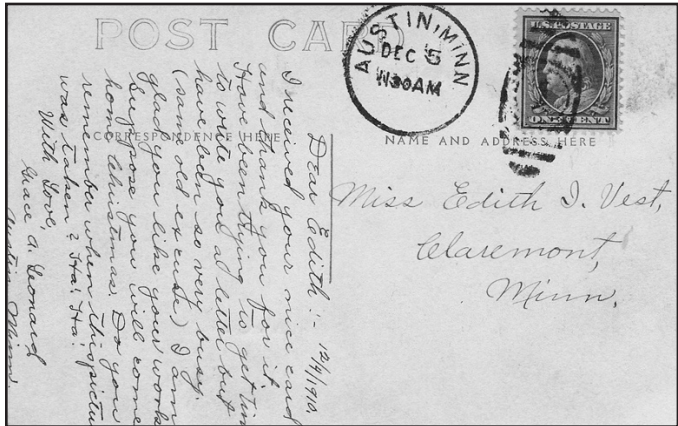 POST CARD
CORRESPONDENCE HERE
NAME AND ADDRESS HERE
AUSTIN, MINN
DEC 5
1130AM
U.S. POSTAGE
ONE CENT
Miss Edith I. Vest,
Claremont,
Minn.
12/4/1910.
Dear Edith:-
I received your nice card
and thank you for it.
Have been trying to get time
to write you a letter but
have been so very busy.
(same old excuse) I am
glad you like your work
Suppose you will come
home Christmas. Do you
remember when this pictu
was taken? Ha! Ha!
With Love,
Grace A. Leonard
Austin Minn